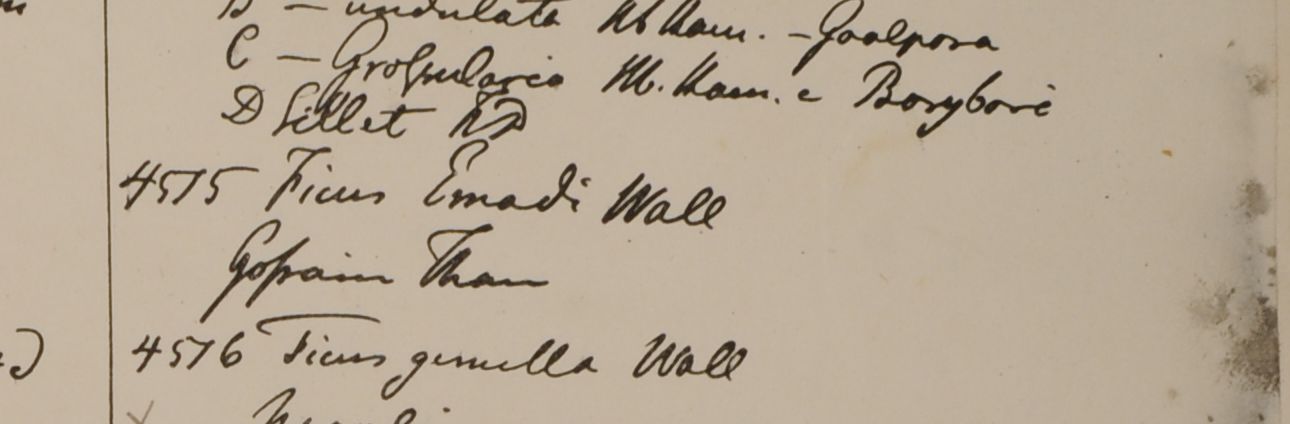 B – undulata Hb Ham. – Goalpora
C – Grossularia Hb. Ham. e Boryborie
D Sillet FD
4515 Ficus Emodi Wall
Gossain Than
4516 Ficus gemella Wall